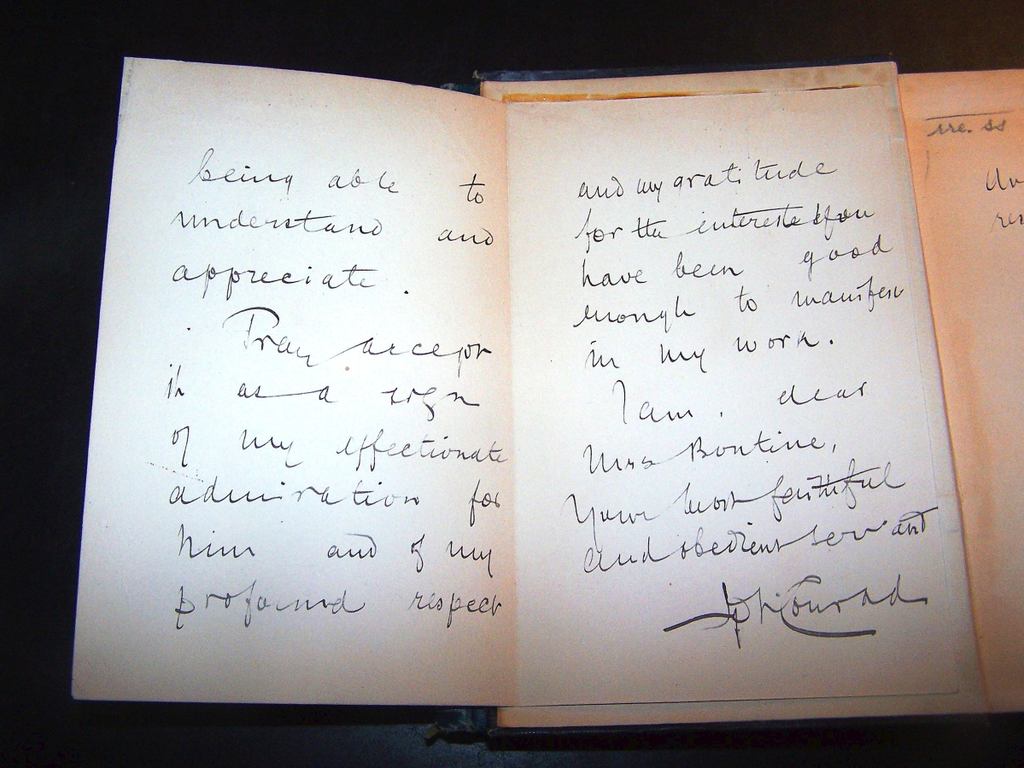 being able to
understand and
appreciate.
Pray accept
it as a sign
of my affectionate
admiration for
him and of my
profound respect
and my gratitude
for the interest you
have been good
enough to manifest
in my work.
I am, dear
Mrs Bontine,
Your most faithful
and obedient servant
Jph Conrad